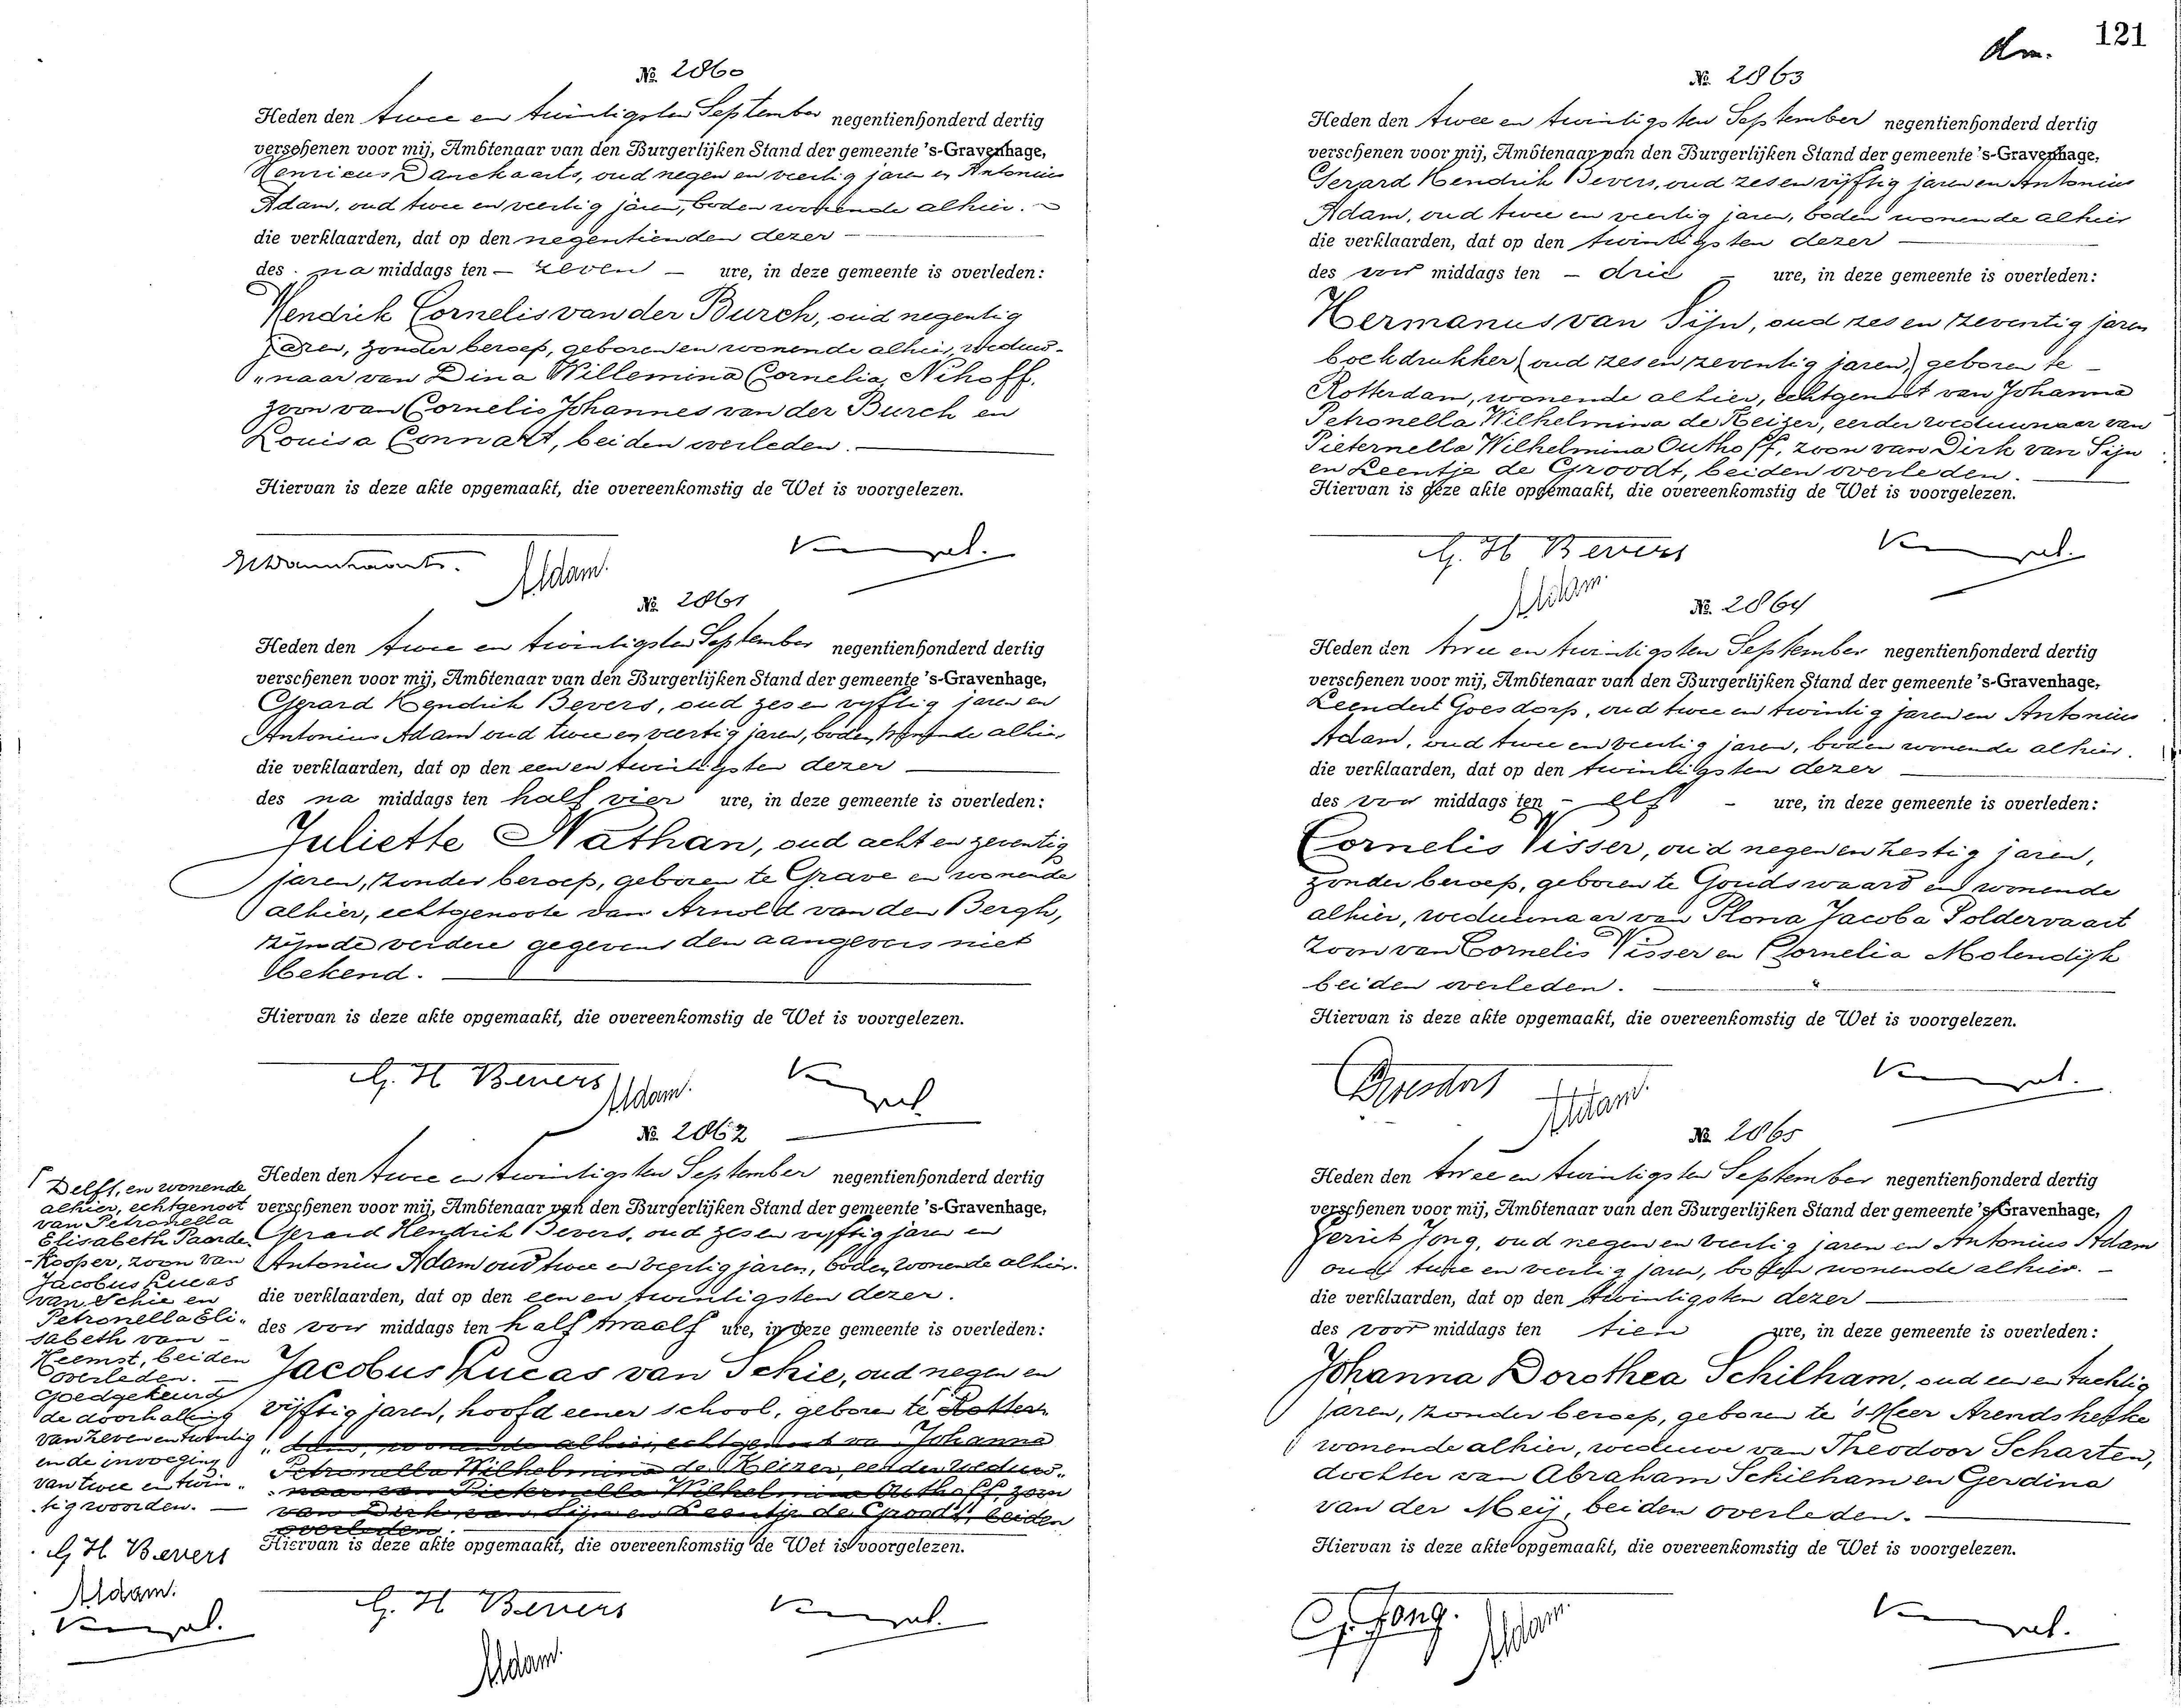 № 2860
Heden den twee en twintigsten September negentienhonderd dertig
verschenen voor mij, Ambtenaar van den Burgerlijken Stand der gemeente 's-Gravenhage,
Henricus Danckaarts, oud negen en veertig jaren en Antonius
Adam, oud twee en veertig jaren, boden wonende alhier.
die verklaarden, dat op den negentienden dezer
des na middags ten zeven ure, in deze gemeente is overleden:
Hendrik Cornelis van der Burch, oud negentig
jaren, zonder beroep, geboren en wonende alhier, weduw-
"naar van Dina Willemina Cornelia Nihoff,
zoon van Cornelis Johannes van der Burch en
Louisa Connart, beiden overleden.
Hiervan is deze akte opgemaakt, die overeenkomstig de Wet is voorgelezen.
AAdam.
№ 2861
Heden den twee en twintigsten September negentienhonderd dertig
verschenen voor mij, Ambtenaar van den Burgerlijken Stand der gemeente 's-Gravenhage,
Gerard Hendrik Bevers, oud zes en vyftig jaren en
Antonius Adam oud twee en veertig jaren, boden, wonende alhier
die verklaarden, dat op den een en twintigsten dezer
des na middags ten half vier ure, in deze gemeente is overleden:
Juliette Nathan, oud acht en zeventig
jaren, zonder beroep, geboren te Grave en wonende
alhier, echtgenoote van Arnold van den Bergh,
zijnde verdere gegevens den aangevers niet
bekend.
Hiervan is deze akte opgemaakt, die overeenkomstig de Wet is voorgelezen.
G. H Bevers AAdam.
№ 2862
Heden den twee en twintigsten September negentienhonderd dertig
verschenen voor mij, Ambtenaar van den Burgerlijken Stand der gemeente 's-Gravenhage,
Gerard Hendrik Bevers, oud zes en vyftig jaren en
Antonius Adam oud twee en veertig jaren, boden, wonende alhier.
die verklaarden, dat op den een en twintigsten dezer.
des voor middags ten half twaalf ure, in deze gemeente is overleden:
Jacobus Lucas van Schie, oud negen en
vijftig jaren, hoofd eener school, geboren te Rotter-
"dam, wonende alhier, echtgenoot van Johanna
Petronella Wilhelmina de Keizer, eerder weduw-
"naar van Pieternella Wilhelmina Outhoff, zoon
van Dirk van Sijn en Leentje de Groodt, beiden
overleden.
Hiervan is deze akte opgemaakt, die overeenkomstig de Wet is voorgelezen.
G. H Bevers
AAdam.
Delft, en wonende
alhier, echtgenoot
van Petronella
Elisabeth Paarde-
-Kooper, zoon van
Jacobus Lucas
van Schie en
Petronella Eli-
sabeth van
Heemst, beiden
overleden.
Goedgekeurd
de doorhaling
van zeven en twintig
en de invoeging
van twee en twin-
tig woorden.
G H Bevers
AAdam.
121
dm.
№ 2863
Heden den twee en twintigsten September negentienhonderd dertig
verschenen voor mij, Ambtenaar van den Burgerlijken Stand der gemeente 's-Gravenhage,
Gerard Hendrik Bevers, oud zes en vijftig jaren en Antonius
Adam, oud twee en veertig jaren, boden wonende alhier
die verklaarden, dat op den twintigsten dezer
des voor middags ten drie ure, in deze gemeente is overleden:
Hermanus van Sijn, oud zes en zeventig jaren
boekdrukker (oud zes en zeventig jaren,) geboren te
Rotterdam, wonende alhier, echtgenoot van Johanna
Petronella Wilhelmina de Keizer, eerder weduwnaar van
Pieternella Wilhelmina Outhoff, zoon van Dirk van Sijn
en Leentje de Groodt, beiden overleden.
Hiervan is deze akte opgemaakt, die overeenkomstig de Wet is voorgelezen.
G. H Bevers
AAdam.
№ 2864
Heden den twee en twintigsten September negentienhonderd dertig
verschenen voor mij, Ambtenaar van den Burgerlijken Stand der gemeente 's-Gravenhage,
Leendert Goesdorp, oud twee en twintig jaren en Antonius
Adam, oud twee en veertig jaren, boden wonende alhier.
die verklaarden, dat op den twintigsten dezer
des voor middags ten elf ure, in deze gemeente is overleden:
Cornelis Visser, oud negen en zestig jaren,
zonder beroep, geboren te Goudswaard en wonende
alhier, weduwnaar van Plona Jacoba Poldervaart
zoon van Cornelis Visser en Cornelia Molendijk
beiden overleden.
Hiervan is deze akte opgemaakt, die overeenkomstig de Wet is voorgelezen.
Goesdorp AAdam.
№ 2865
Heden den twee en twintigsten September negentienhonderd dertig
verschenen voor mij, Ambtenaar van den Burgerlijken Stand der gemeente 's-Gravenhage,
Gerrit Jong, oud negen en veertig jaren en Antonius Adam
oud twee en veertig jaren, boden wonende alhier.
die verklaarden, dat op den twintigsten dezer
des voor middags ten tien ure, in deze gemeente is overleden:
Johanna Dorothea Schilham, oud een en tachtig
jaren, zonder beroep, geboren te 's Heer Arendskerke
wonende alhier, weduwe van Theodoor Scharten,
dochter van Abraham Schilham en Gerdina
van der Meij, beiden overleden.
Hiervan is deze akte opgemaakt, die overeenkomstig de Wet is voorgelezen.
G. Jong. AAdam.